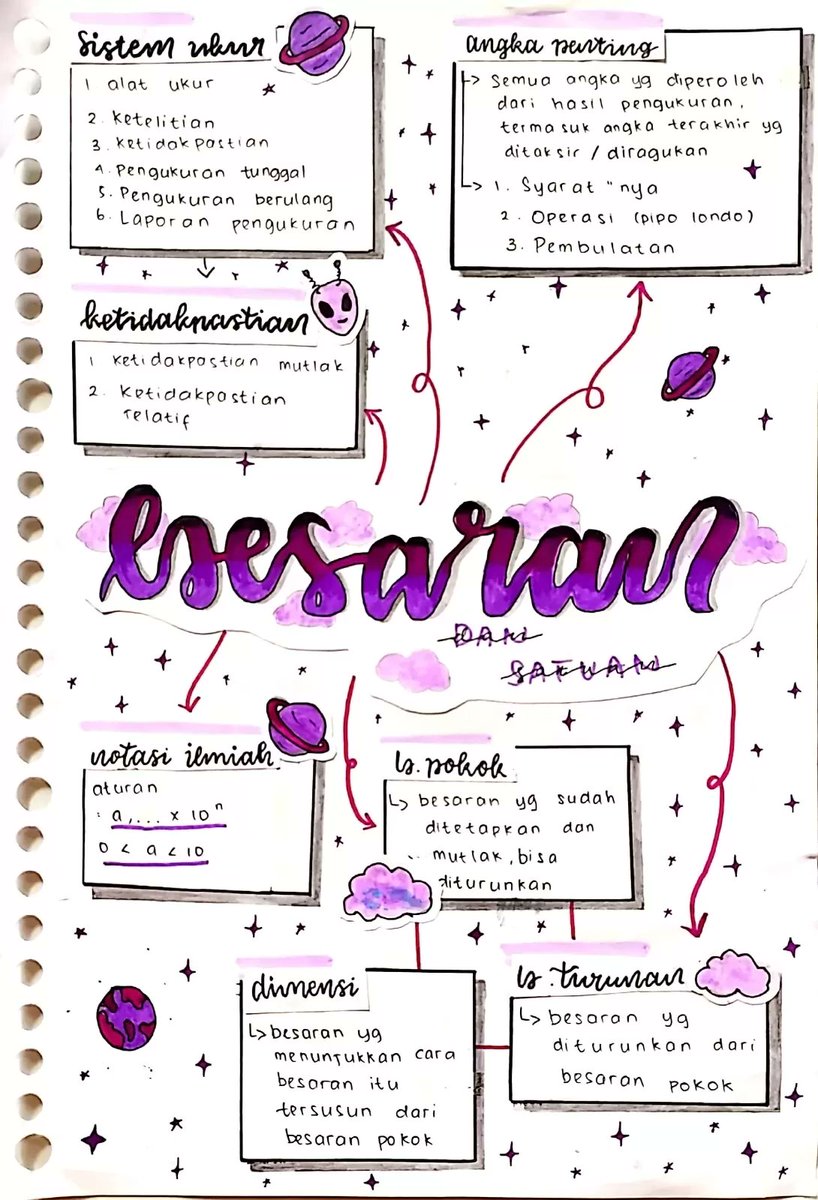 Sistem ukur
1 alat ukur
2. Ketelitian
3. Ketidakpastian
4. Pengukuran tunggal
5. Pengukuran berulang
6. Laporan pengukuran
angka penting
↳ Semua angka yg diperoleh
dari hasil pengukuran,
termasuk angka terakhir yg
ditaksir / diragukan
↳ 1. Syarat "nya
2. Operasi (pipo londo)
3. Pembulatan
ketidakpastian
1 Ketidakpastian mutlak
2. Ketidakpastian
relatif
besaran
DAN
SATUAN
notasi ilmiah
aturan
: a,... x 10ⁿ
0 < a < 10
b. pokok
↳ besaran yg sudah
ditetapkan dan
mutlak, bisa
diturunkan
dimensi
↳ besaran yg
menunjukkan cara
besaran itu
tersusun dari
besaran pokok
b. turunan
↳ besaran yg
diturunkan dari
besaran pokok